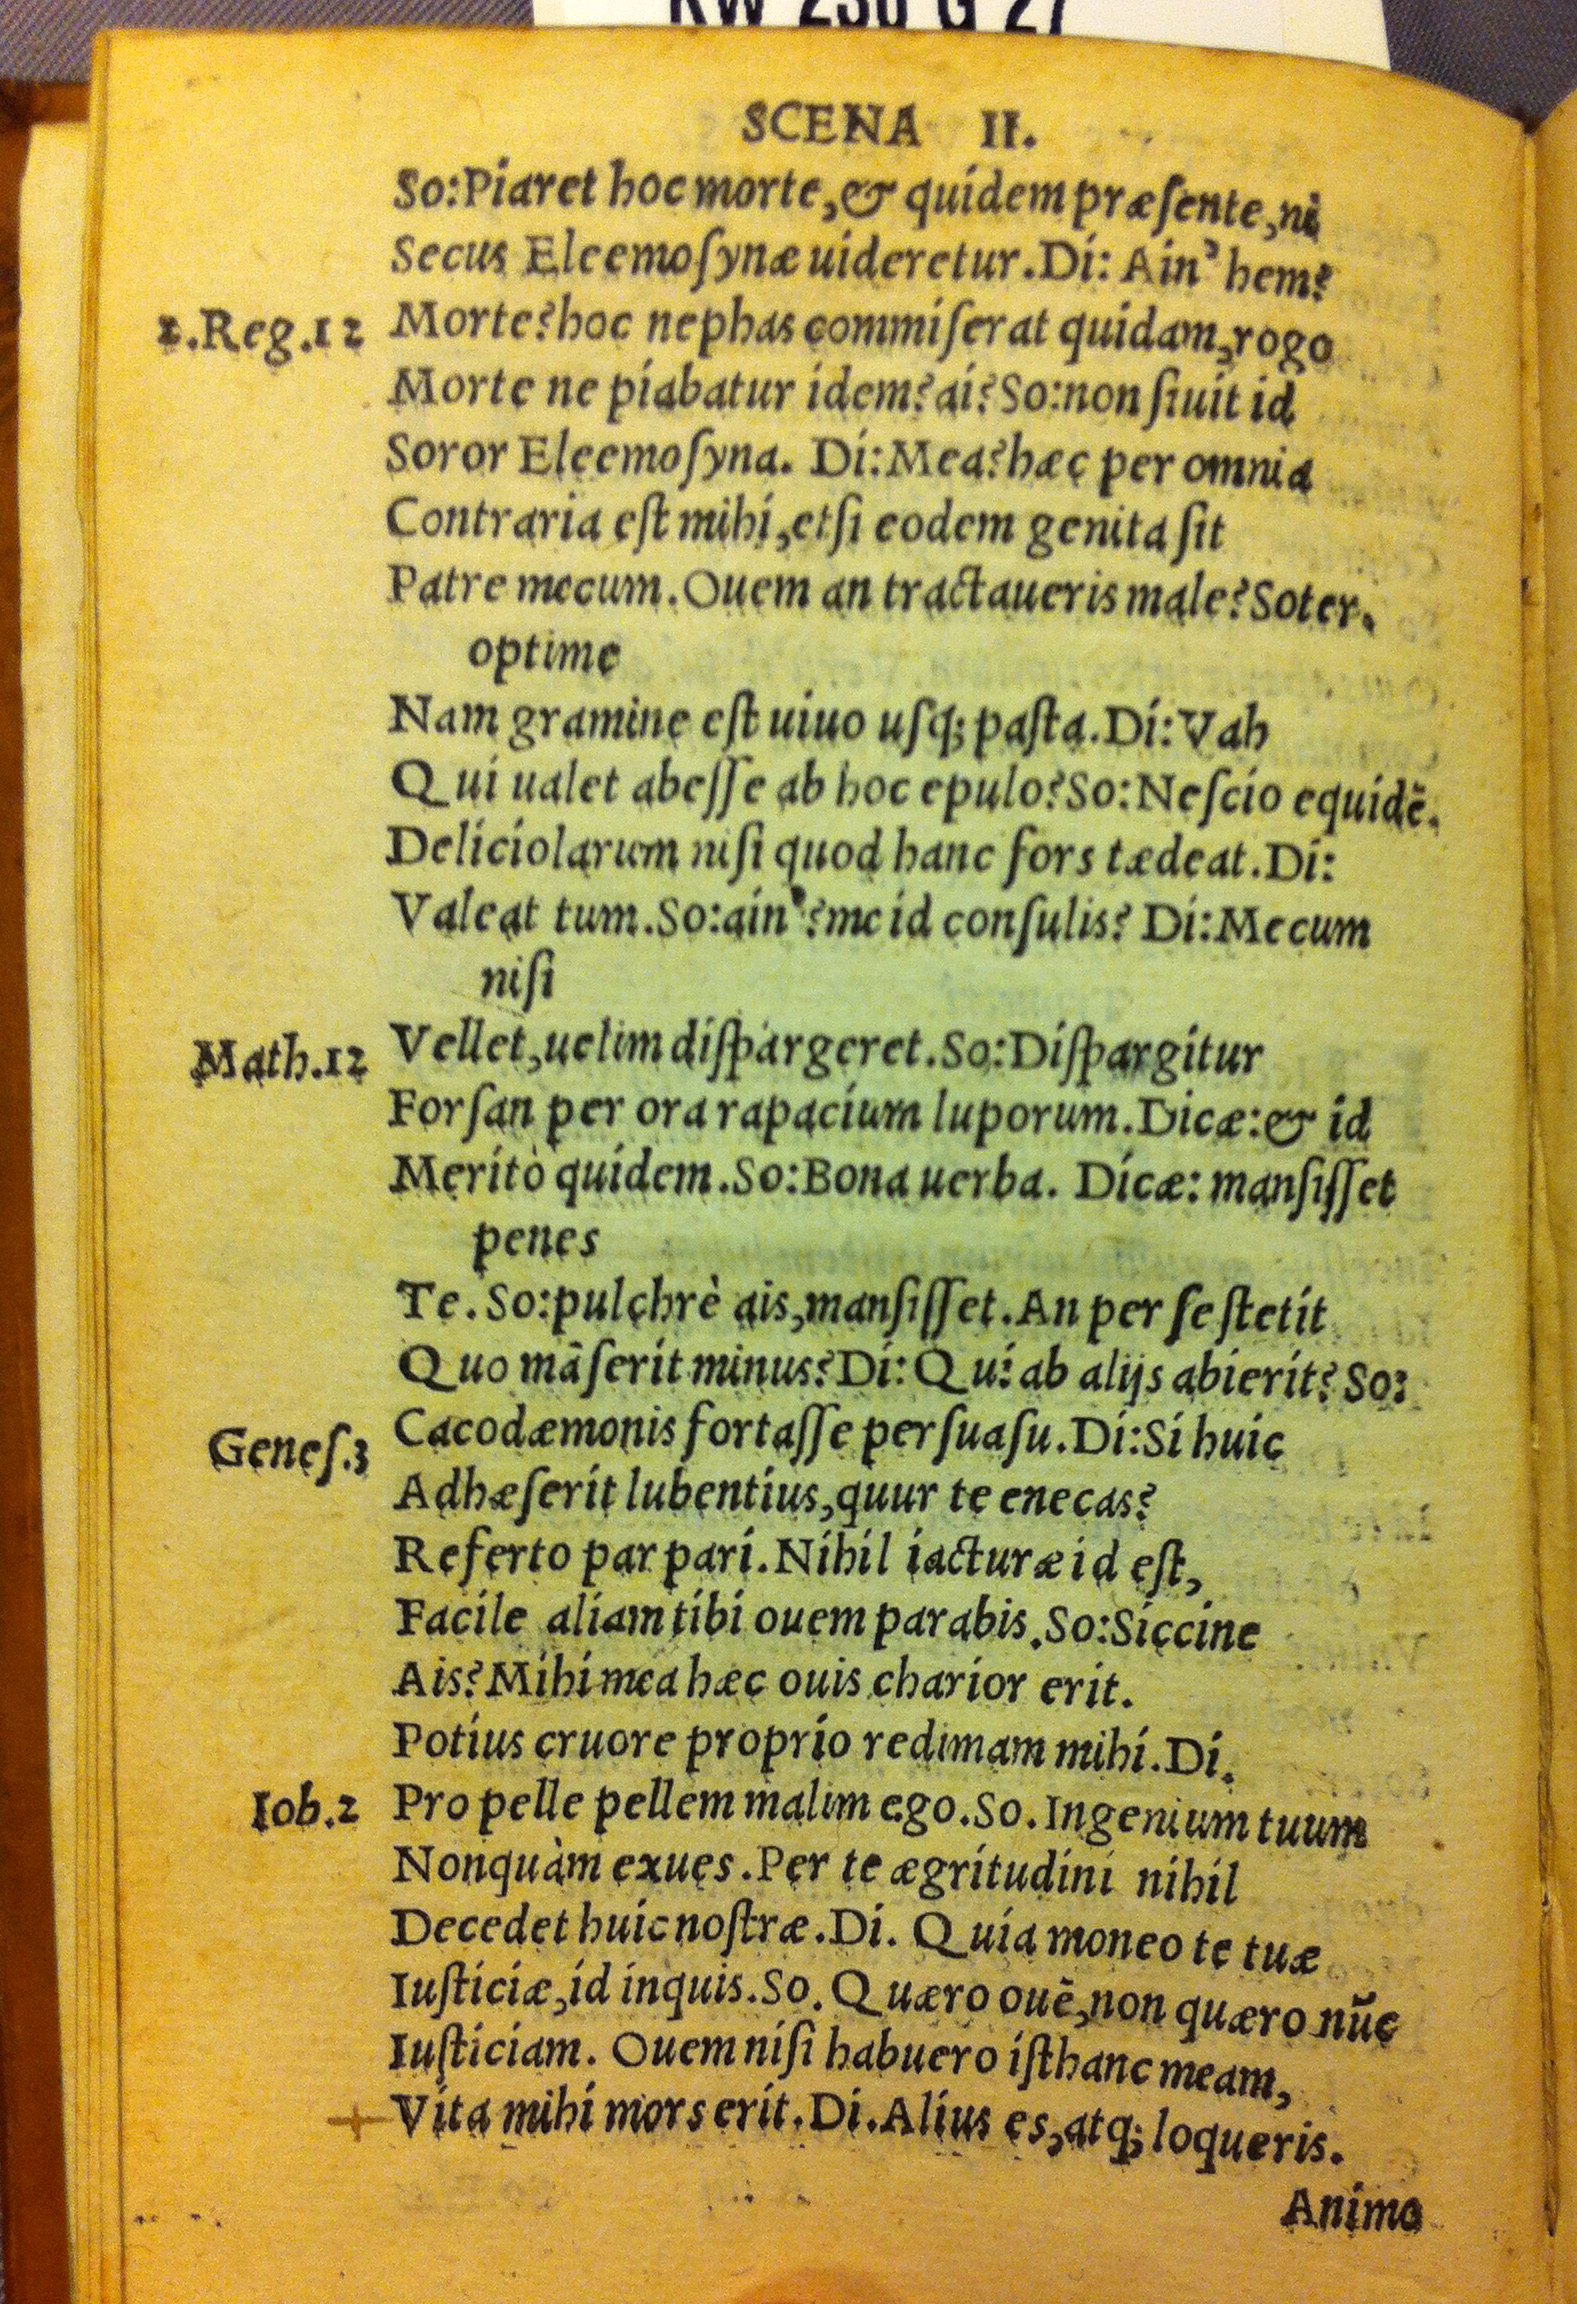 KW 238 G 27
SCENA II.
So:Piaret hoc morte,& quidem præſente,ni
Secus Eleemoſynæ uideretur.Di: Ain' hem?
2.Reg.12 Morte?hoc nephas commiſerat quidam,rogo
Morte ne piabatur idem?ai?So:non ſiuit id
Soror Eleemoſyna. Di:Mea?hæc per omnia
Contraria eſt mihi,etſi eodem genita ſit
Patre mecum.Ouem an tractaueris male?Soter.
optime
Nam gramine eſt uiuo uſq; paſta.Di:Vah
Qui ualet abeſſe ab hoc epulo?So:Neſcio equidē.
Deliciolarum niſi quod hanc fors tædeat.Di:
Valeat tum.So:ain'?me id conſulis? Di:Mecum
niſi
Math.12 Vellet,uelim diſpargeret.So:Diſpargitur
Forſan per ora rapacium luporum.Dicæ:& id
Meritò quidem.So:Bona uerba. Dicæ: manſiſſet
penes
Te.So:pulchrè ais,manſiſſet.An per ſe ſtetit
Quo mãſerit minus?Di:Qui ab alijs abierit?So:
Geneſ.3 Cacodæmonis fortaſſe perſuaſu.Di:Si huic
Adhæſerit lubentius,quur te enecas?
Referto par pari.Nihil iacturæ id eſt,
Facile aliam tibi ouem parabis.So:Siccine
Ais?Mihi mea hæc ouis charior erit.
Potius cruore proprio redimam mihi.Di.
Iob.2 Pro pelle pellem malim ego.So.Ingenium tuum
Nonquàm exues.Per te ægritudini nihil
Decedet huic noſtræ.Di. Quia moneo te tuæ
Iuſticiæ,id inquis.So.Quæro ouē,non quæro nūc
Iuſticiam. Ouem niſi habuero iſthanc meam,
Vita mihi mors erit.Di.Alius es,atq; loqueris.
Animo